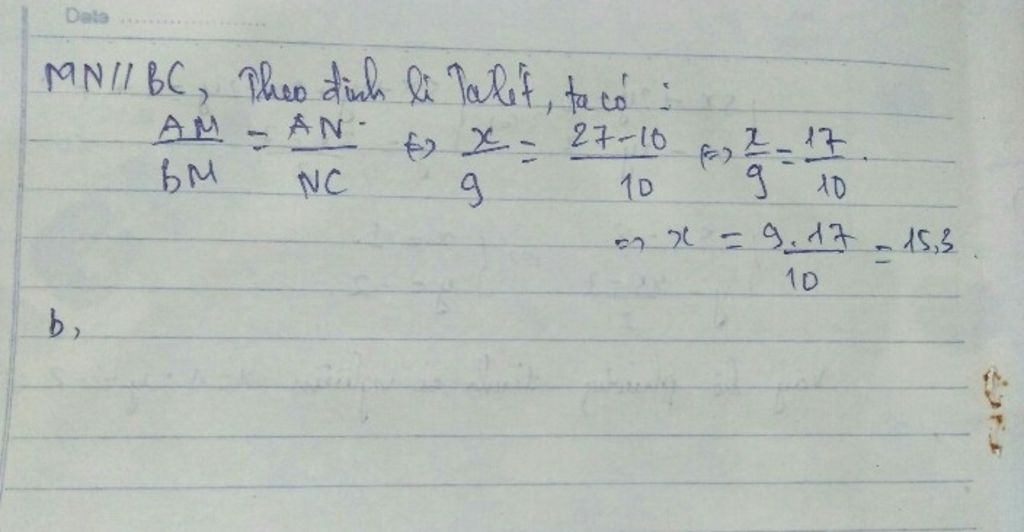 Date
MN // BC, Theo định lí Talét, ta có :
AM/BM = AN/NC <=> x/9 = 27-10/10 <=> x/9 = 17/10.
=> x = 9.17/10 = 15,3.
b,